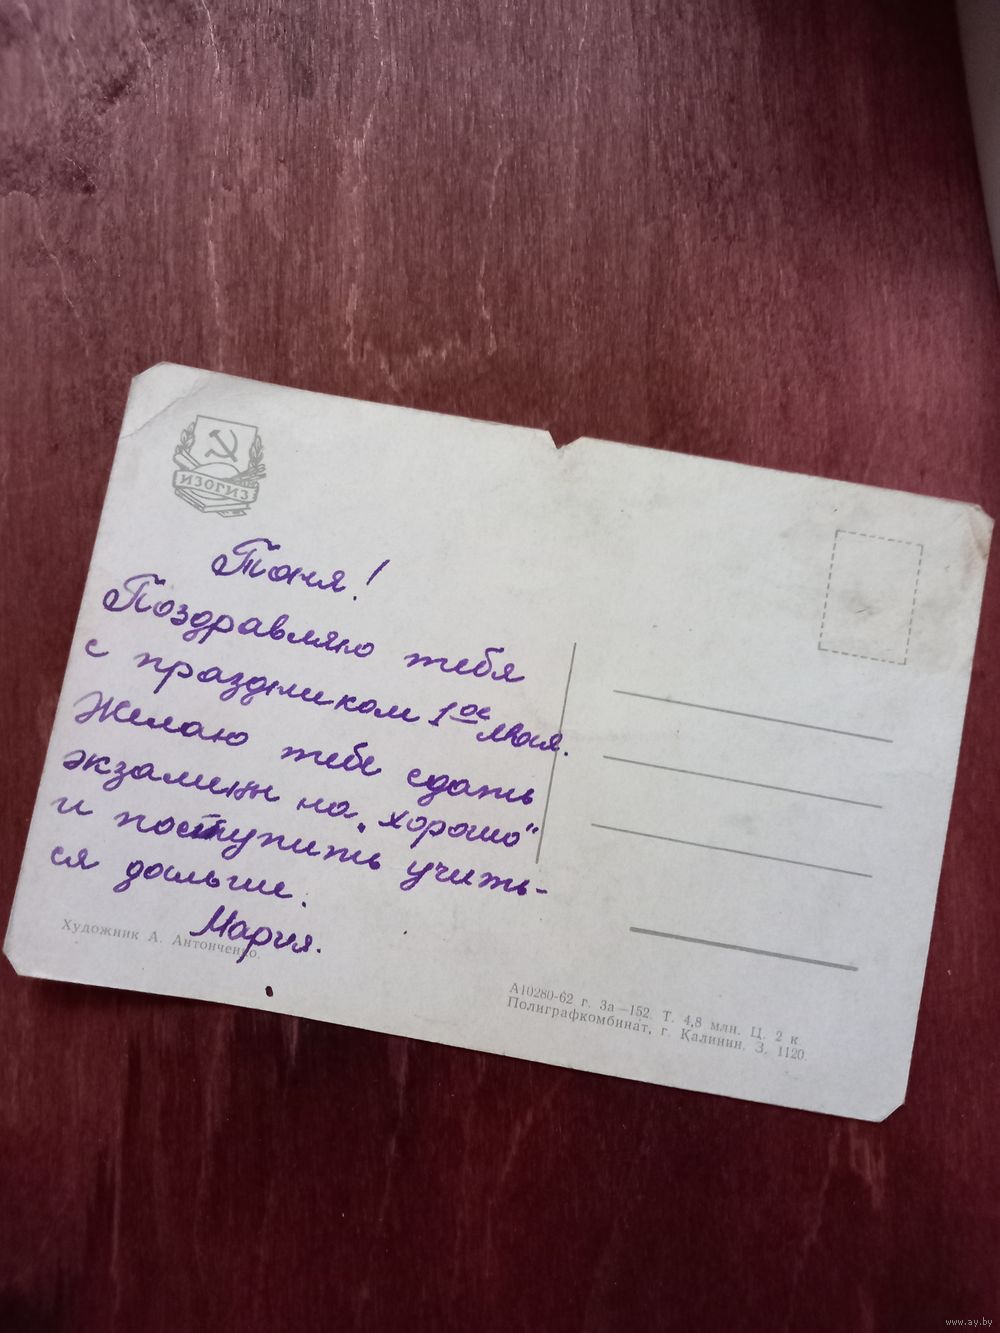 ИЗОГИЗ
Тоня!
Поздравляю тебя
с праздником 1ое мая.
Желаю тебе сдать
экзамены на „хорошо“
и поступить учить-
ся дальше.
Мария.
Художник А. Антонченко.
А10280-62 г. За—152. Т. 4,8 млн. Ц. 2 к.
Полиграфкомбинат, г. Калинин. З. 1120.
www.ay.by